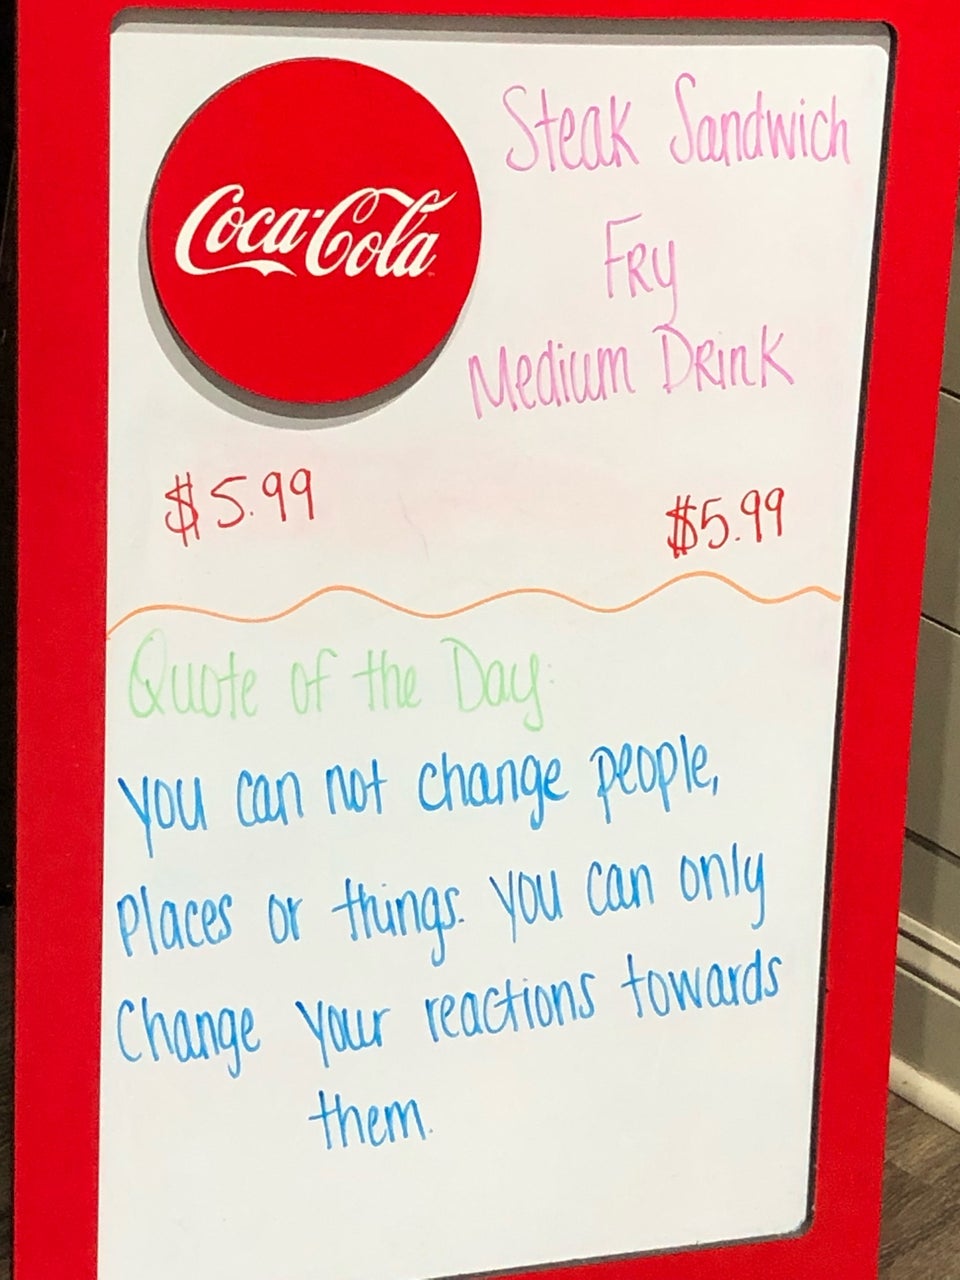 Coca-Cola
Steak Sandwich
Fry
Medium Drink
$5.99 $5.99
Quote of the Day:
you can not change people,
Places or things. you can only
Change your reactions towards
them.